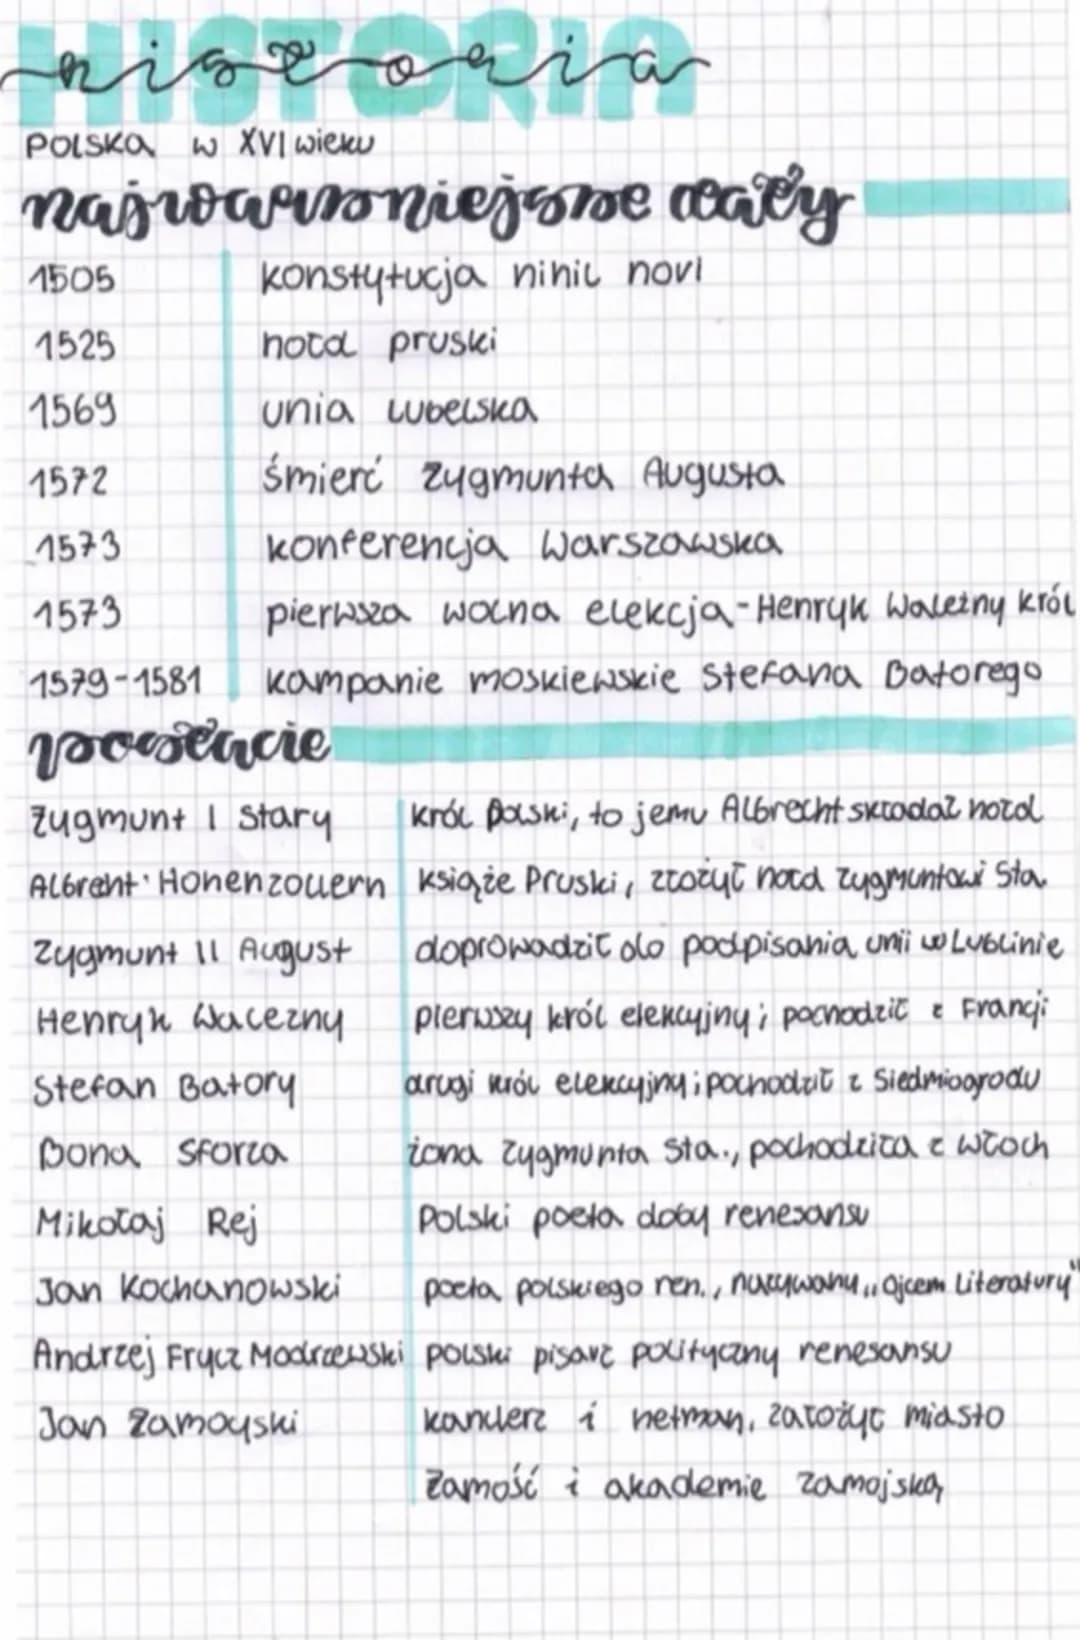 HISTORIA
historia
POLSKA w XVI wieku
najważniejsze daty
1505 konstytucja nihil novi
1525 hołd pruski
1569 unia lubelska
1572 śmierć Zygmunta Augusta
1573 konferencja Warszawska
1573 pierwsza wolna elekcja - Henryk Wależny król
1579-1581 kampanie moskiewskie Stefana Batorego
postacie
Zygmunt I Stary król Polski, to jemu Albrecht składał hołd
Albreht Hohenzollern książe Pruski, złożył hołd Zygmuntowi Sta.
Zygmunt II August doprowadził do podpisania unii w Lublinie
Henryk Walezny pierwszy król elekcyjny; pochodził z Francji
Stefan Batory drugi król elekcyjny; pochodził z Siedmiogrodu
Bona Sforza żona Zygmunta Sta., pochodziła z Włoch
Mikołaj Rej Polski poeta doby renesansu
Jan Kochanowski poeta polskiego ren., nazywany „Ojcem Literatury"
Andrzej Frycz Modrzewski polski pisarz polityczny renesansu
Jan Zamoyski kanclerz i hetman, założył miasto
Zamość i akademie zamojską